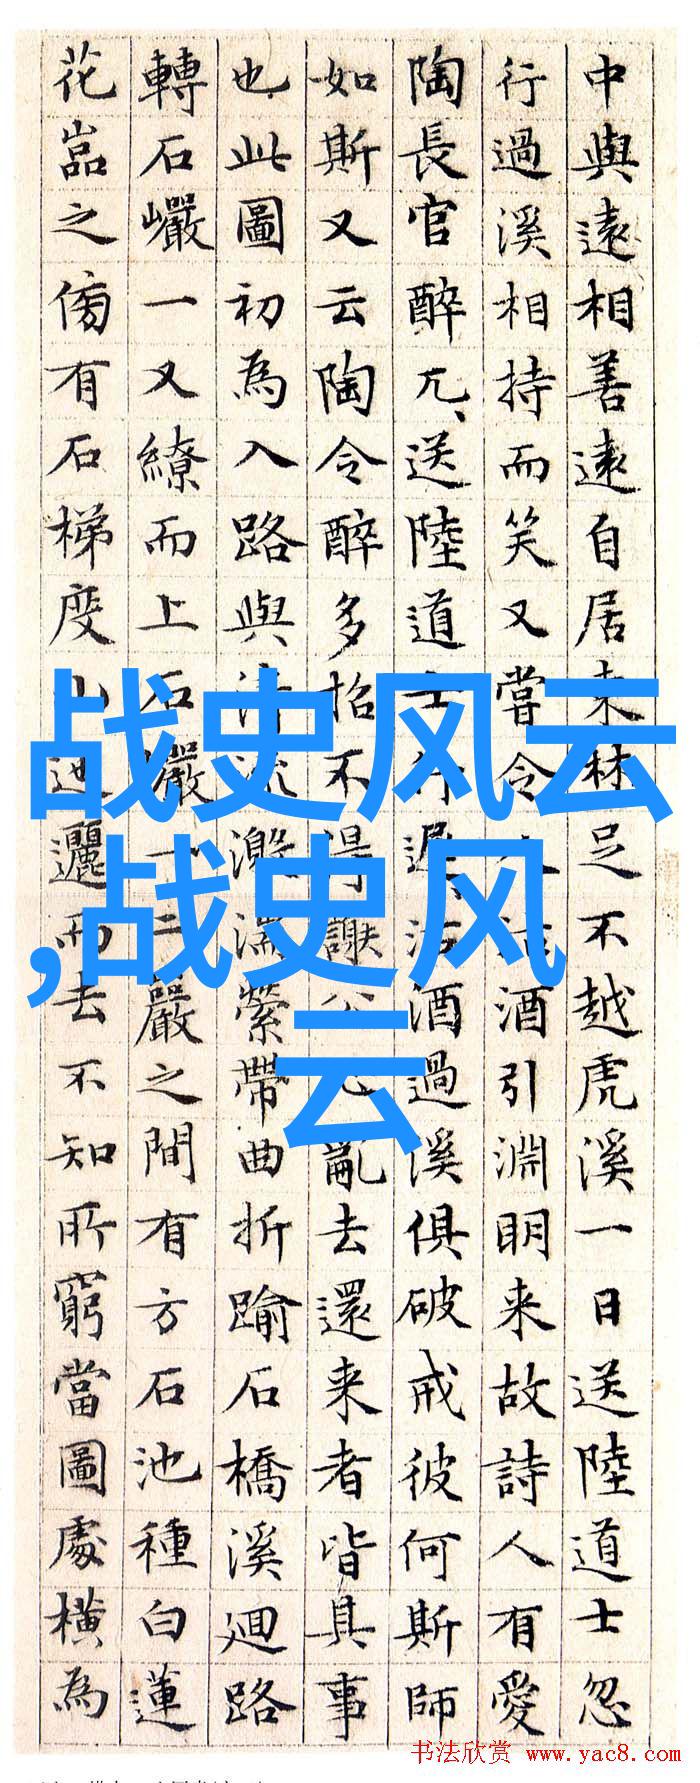 中與遠相善遠自居東林足不越虎溪一日送陸道士忽
行過溪相持而笑又嘗令人沽酒引淵明来故詩人有愛
陶長官醉兀、送陸道士行遲、沽酒過溪俱破戒彼何斯師
如斯又云陶令醉多招不得謝公心亂去還来者皆具事
也此圖初為入路與清流激湍縈帶曲折踰石橋溪迴路
轉石巖一又繚而上石巖一二巖之間有方石池種白蓮
花嵓之傍有石梯度山迤邐而去不知所窮當圖處橫為
战史风云
,战史风
云
书法欣赏 www.yac8.com